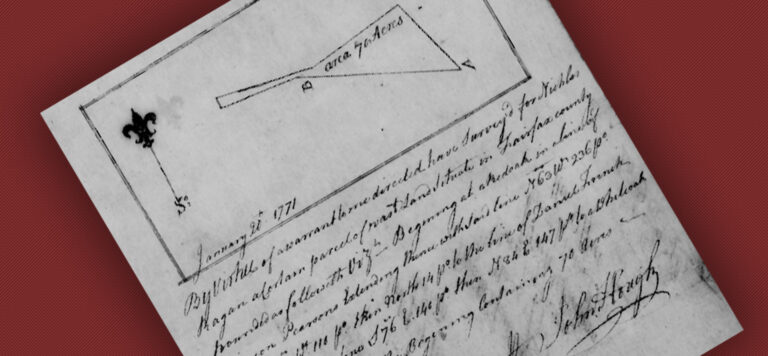 area 70 Acres
B
A
So
January 2d 1771
By Virtue of a warrant to me directed have Survey'd for Nichlas
Ragan a Certain parcel of wast Land Situate in Fairfax county
bounded as followeth Viz Begining at a Red oak in a line of
Pearsons Extending thence with said line N 63 W 236 po
110 po then North 14 po to the line of Daniel French
S 76 E 146 po then N 34 E 147 po to a White oak
Begining Containing 70 acres
John Hough